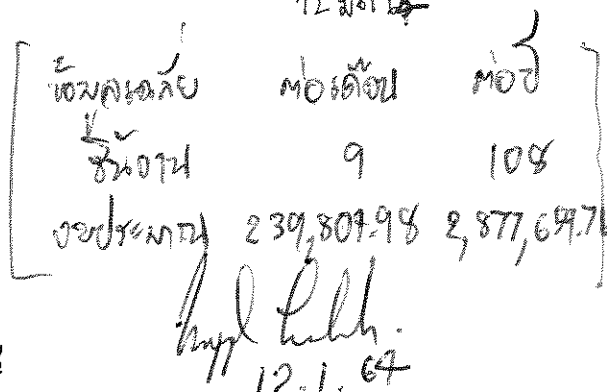 ข้อมูลเฉลี่ย ต่อเดือน ต่อปี
ชิ้นงาน 9 108
งบประมาณ 239,807.98 2,877,659.71
12.1.64